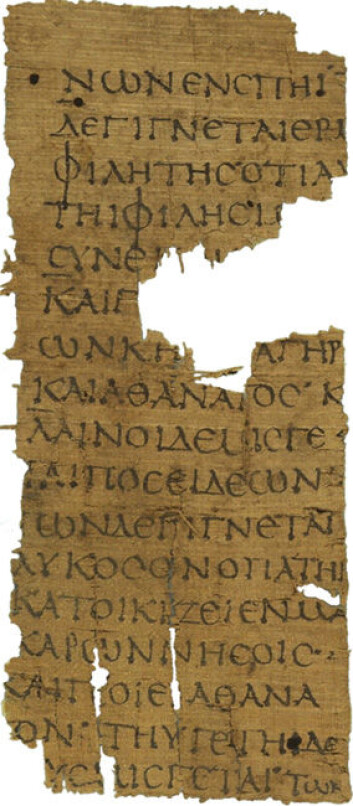 ΝΩΝΕΝCΠΗΙ
ΔΕΓΙΓΝΕΤΑΙΕΡΜ
ΦΙΛΗΤΗCΟΤΙΑΥ
ΤΗΙΦΙΛΗCΙ
CΥΝΕ
ΚΑΙΓ
ΩΝΚΗ ΑΓΗΡ
ΚΑΙΑΘΑΝΑΤΟC Κ
ΛΑΙΝΟΙΔΕΜΙCΓΕ
ΤΑΙΠΟCΕΙΔΕΩΝ
ΤΩΝΔΕΓΙΓΝΕΤΑΙ
ΛΥΚΟCΟΝΟΠΑΤΗ
ΚΑΤΟΙΚΙΖΕΙΕΝΜΑ
ΚΑΡΩΝΝΗCΟΙC
ΚΑΙΠΟΙΕΙΑΘΑΝΑ
ΟΝ ΤΗΥΓΕΤΗΙΔΕ
ΥCΜΙCΓΕΤΑΙ ΤΩΝ